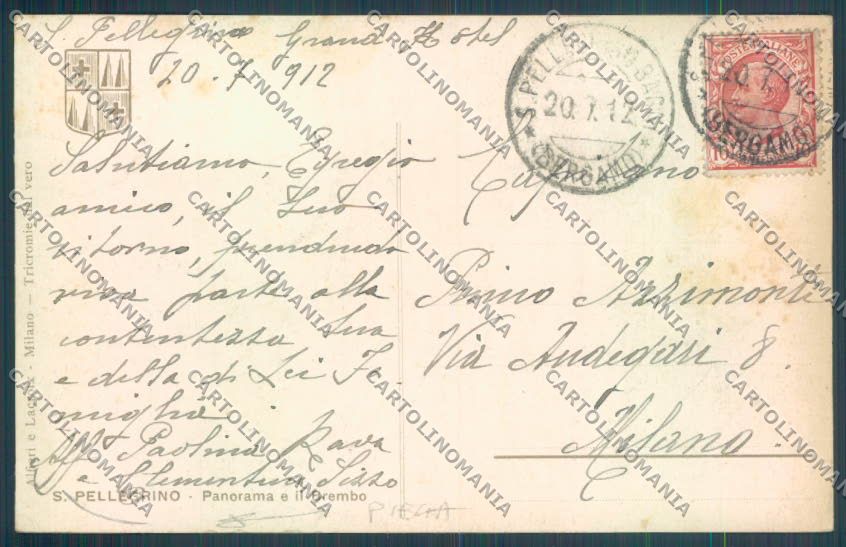 S. Pellegrino Grand Hôtel
20 - 7 912
Salutiamo, Egregio
amico, il Suo
ritorno, prendendo
viva parte alla
contentezza Sua
e della di Lei Fa-
miglia.
Aff Paolina Rava
e Clementina Sizzo
S. PELLEGRINO - Panorama e il Brembo
Alfieri e Lacroix - Milano - Tricromie dal vero
S. PELLEGRINO
20.7.12
(BERGAMO)
POSTE ITALIANE
20.7.
(BERGAMO)
Primo Azzimonti
Via Andegari 8.
Milano
PIEGA
CARTOLINOMANIA